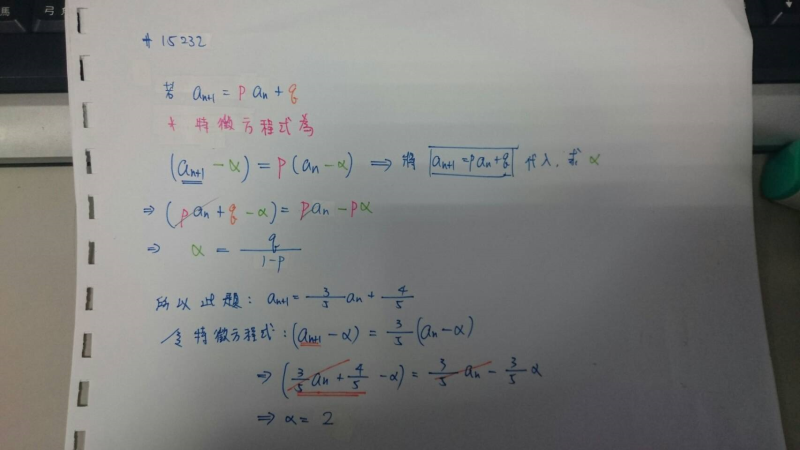 # 15232
若 aₙ₊₁ = p aₙ + q
* 特徵方程式為
(aₙ₊₁ - α) = p(aₙ - α) ⇒ 將 aₙ₊₁ = p aₙ + q 代入,求 α
⇒ (p aₙ + q - α) = p aₙ - pα
⇒ α = q/(1-p)
所以此題: aₙ₊₁ = 3/5 aₙ + 4/5
令特徵方程式: (aₙ₊₁ - α) = 3/5 (aₙ - α)
⇒ (3/5 aₙ + 4/5 - α) = 3/5 aₙ - 3/5 α
⇒ α = 2